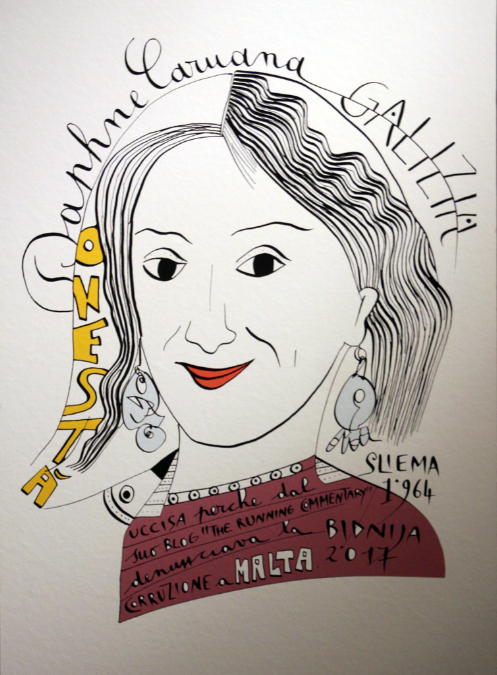 Daphne Caruana GALIZIA
ONESTÀ
SLIEMA
1964
UCCISA perché dal
suo BLOG "THE RUNNING COMMENTARY"
denunciava la BIDNIJA
CORRUZIONE a MALTA 2017